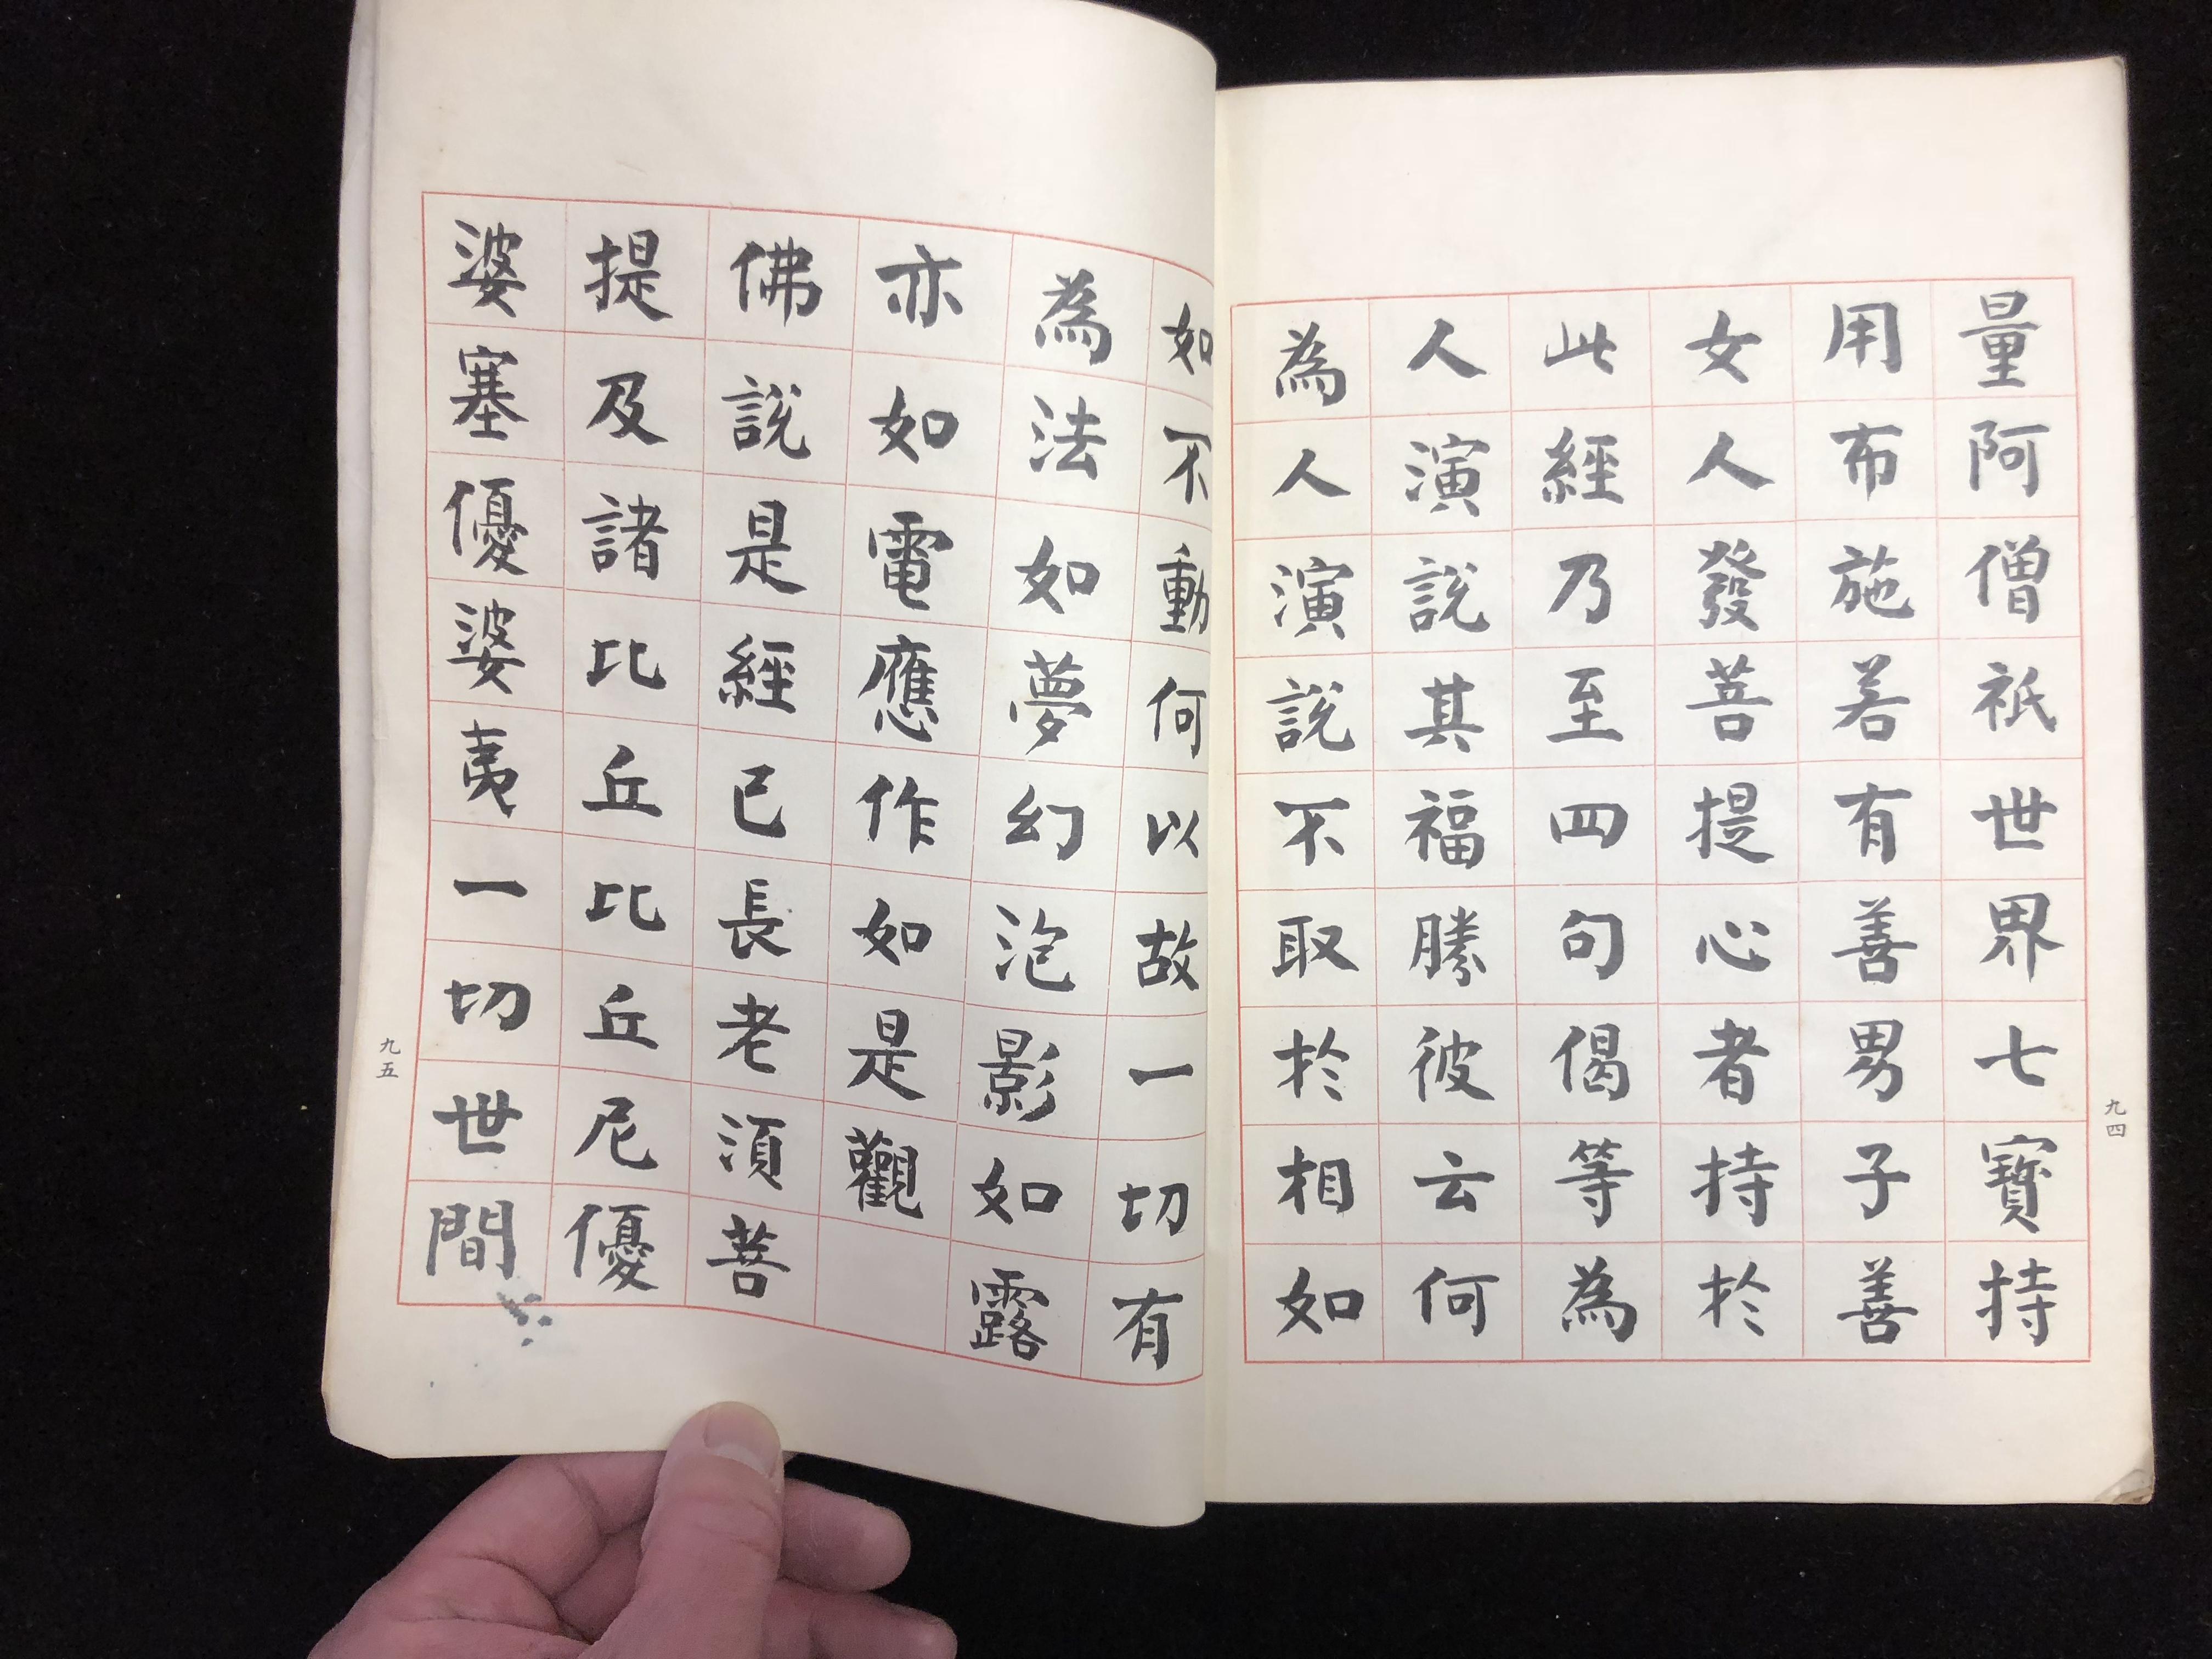 量阿僧祇世界七寶持
用布施若有善男子善
女人發菩提心者持於
此經乃至四句偈等為
人演說其福勝彼云何
為人演說不取於相如
九四
如不動何以故一切有
為法如夢幻泡影如露
亦如電應作如是觀
佛說是經已長老須菩
提及諸比丘比丘尼優
婆塞優婆夷一切世間
九五